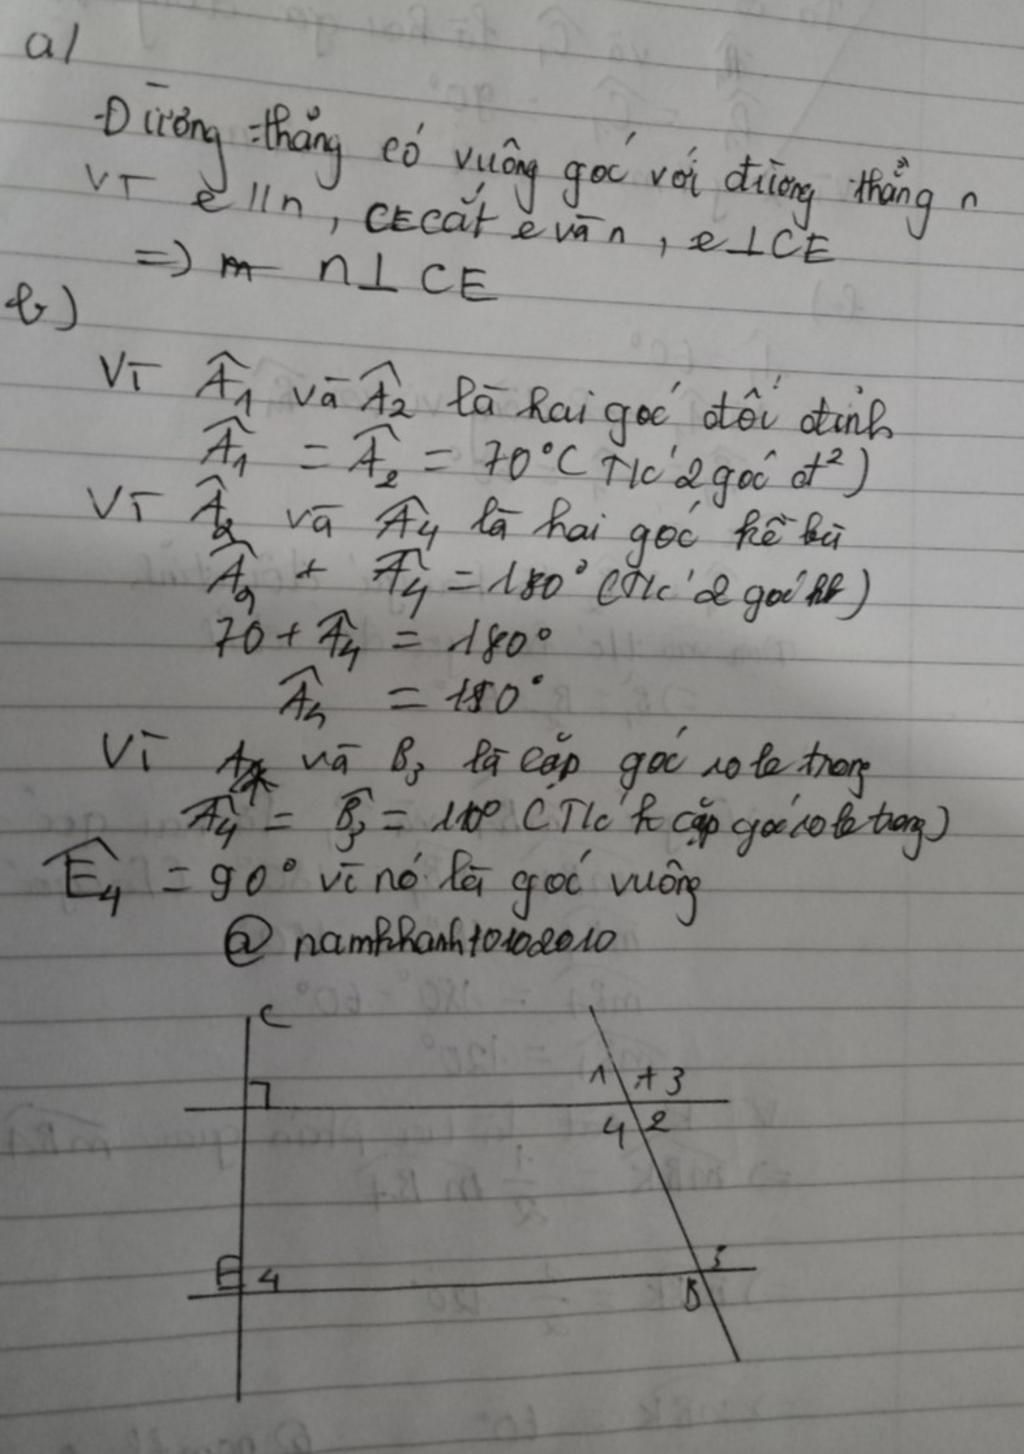 a/
-Đường thẳng có vuông góc với đường thẳng n
Vì e // n, CE cắt e và n, e⊥CE
=> m n⊥ CE
b)
Vì Â1 và Â2 là hai góc đối đỉnh
Â1 = Â2 = 70° (T/c 2 góc đ²)
Vì Â2 và Â4 là hai góc kề bù
Â2 + Â4 = 180° (T/c 2 góc kb)
70 + Â4 = 180°
Â4 = 110°
Vì A4 và B3 là cặp góc so le trong
Â4 = B̂3 = 110° (T/c cặp góc so le trong)
Ê4 = 90° vì nó là góc vuông
@ namkhanh10102010
C
1 A 3
4 2
E 4 3
B